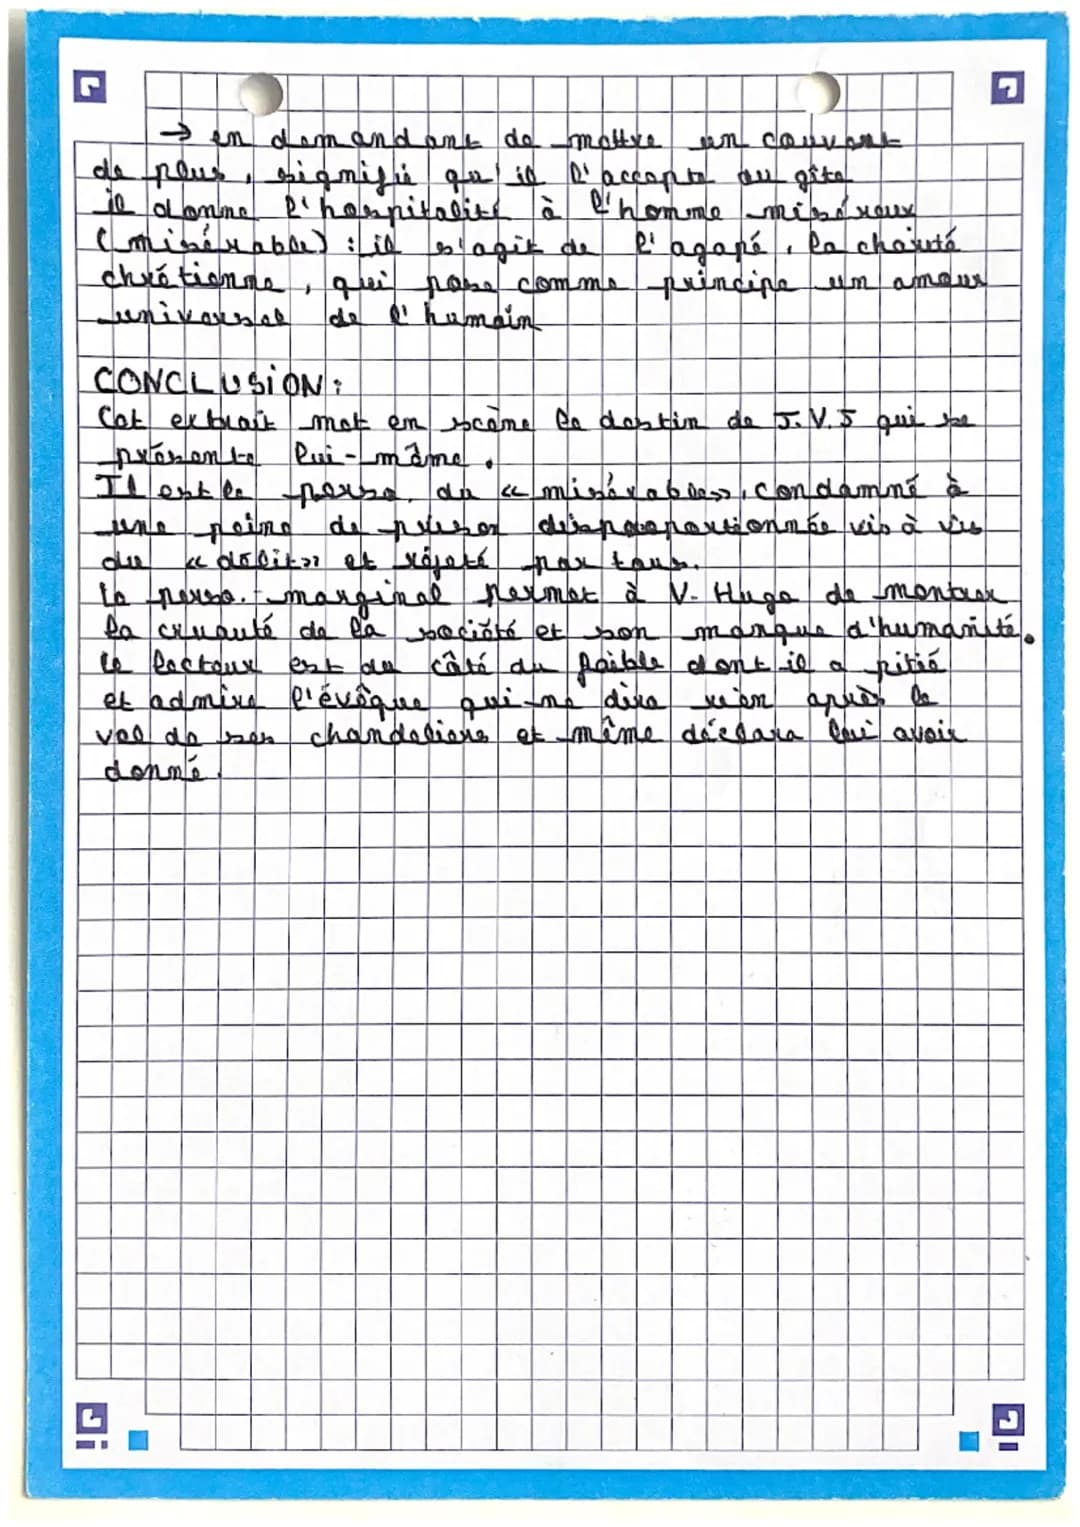 → en demandant de mettre un couvert
de plus, signifie qu'il l'accepte au gîte
il donne l'hospitalité à l'homme miséreux
(misérable) : il s'agit de l'agapé, la charité
chrétienne, qui pose comme principe un amour
universel de l'humain
CONCLUSION :
Cet extrait met en scène le destin de J.V.J qui se
présente lui-même.
Il est le perso. du « misérable », condamné à
une peine de prison disproportionnée vis à vis
du « délit » et rejeté par tous.
Le perso. marginal permet à V. Hugo de montrer
la cruauté de la société et son manque d'humanité.
Le lecteur est du côté du faible dont il a pitié
et admire l'évêque qui ne dira rien après le
vol de ses chandeliers et même déclara lui avoir
donné.